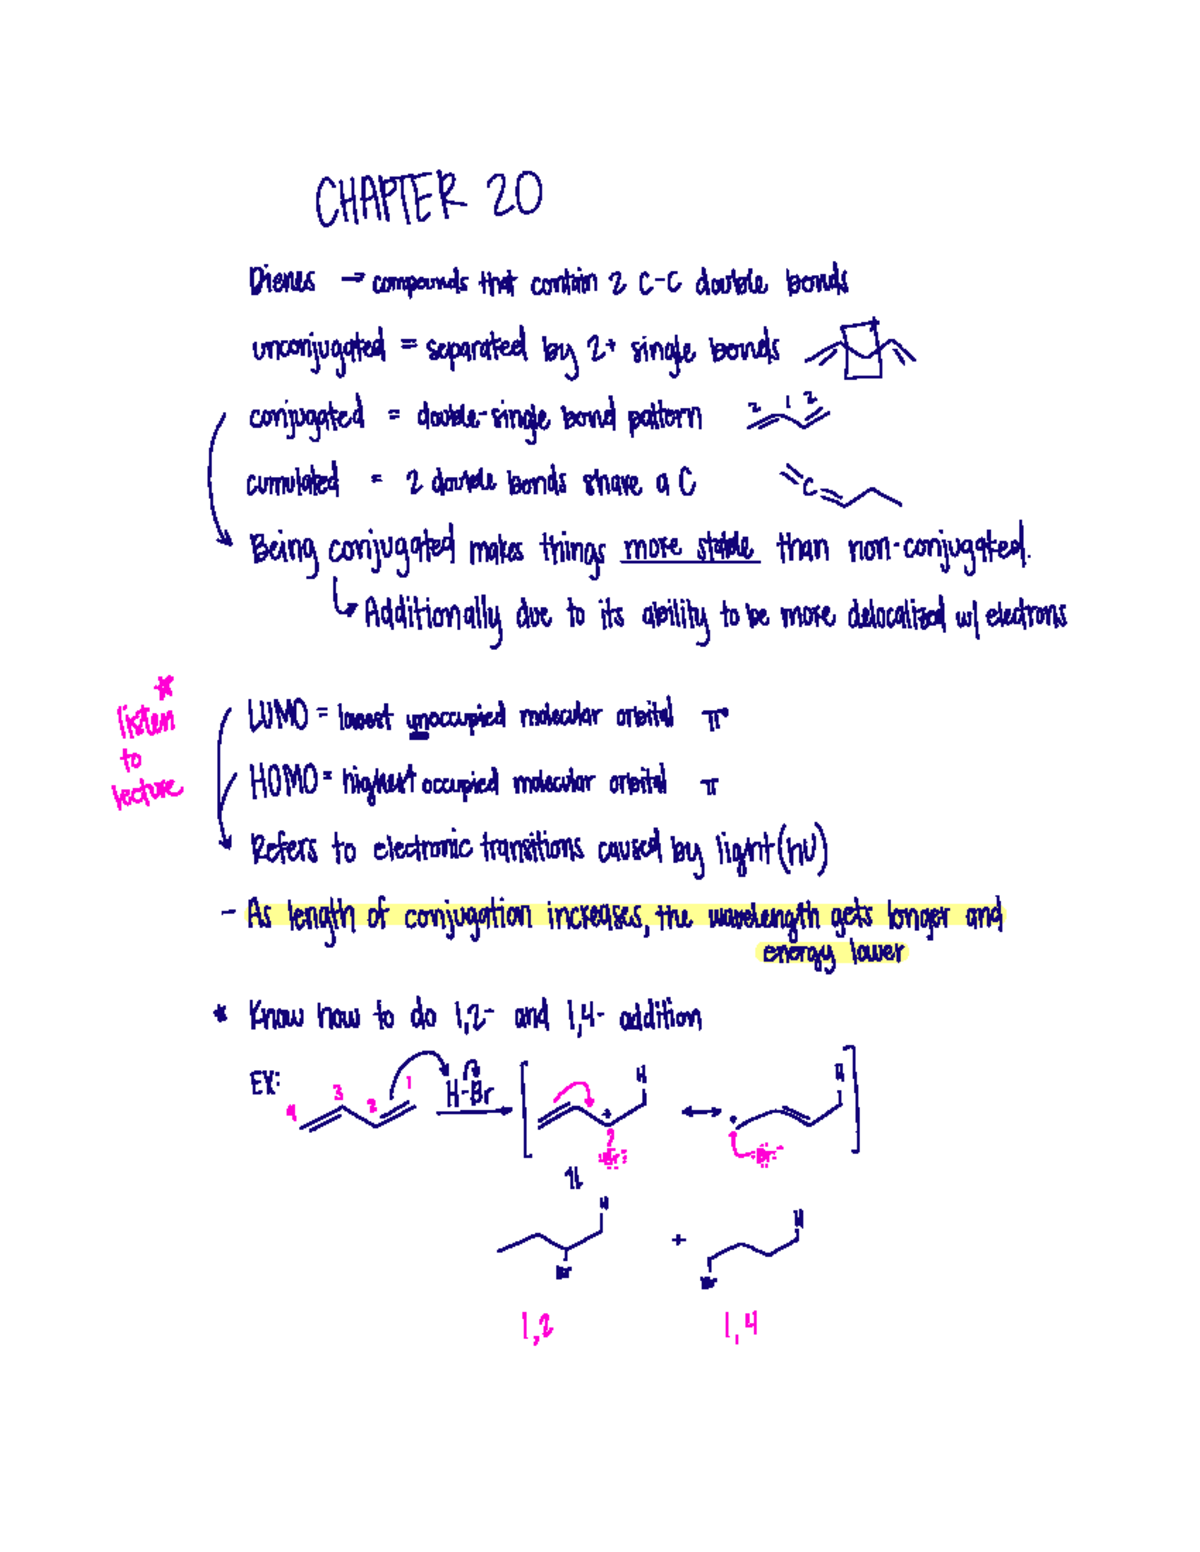 CHAPTER 20
Dienes → compounds that contain 2 C-C double bonds
unconjugated = separated by 2+ single bonds
conjugated = double-single bond pattern 2 1 2
cumulated = 2 double bonds share a C C
Being conjugated makes things more stable than non-conjugated.
↳ Additionally due to its ability to be more delocalized w/ electrons
* listen to lecture
LUMO = lowest unoccupied molecular orbital π*
HOMO = highest occupied molecular orbital π
Refers to electronic transitions caused by light (hυ)
- As length of conjugation increases, the wavelength gets longer and
energy lower
* Know how to do 1,2- and 1,4- addition
EX: 4 3 2 1 H-Br H + Br H + Br
H Br + H Br
1,2 1,4